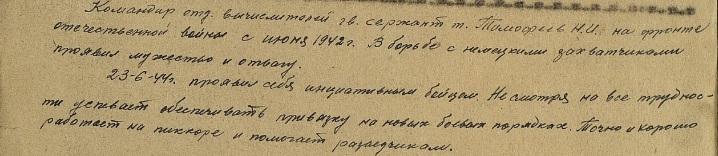 Командир отд. вычислителей гв. сержант т. Тимофеев Н.И. на фронте
отечественной войны с июня 1942г. В борьбе с немецкими захватчиками
проявил мужество и отвагу.
23-6-44г. проявил себя инициативным бойцом. Несмотря на все труднос-
ти успевает обеспечивать привязку на новых боевых порядках. Точно и хорошо
работает на пикоре и помогает разведчикам.